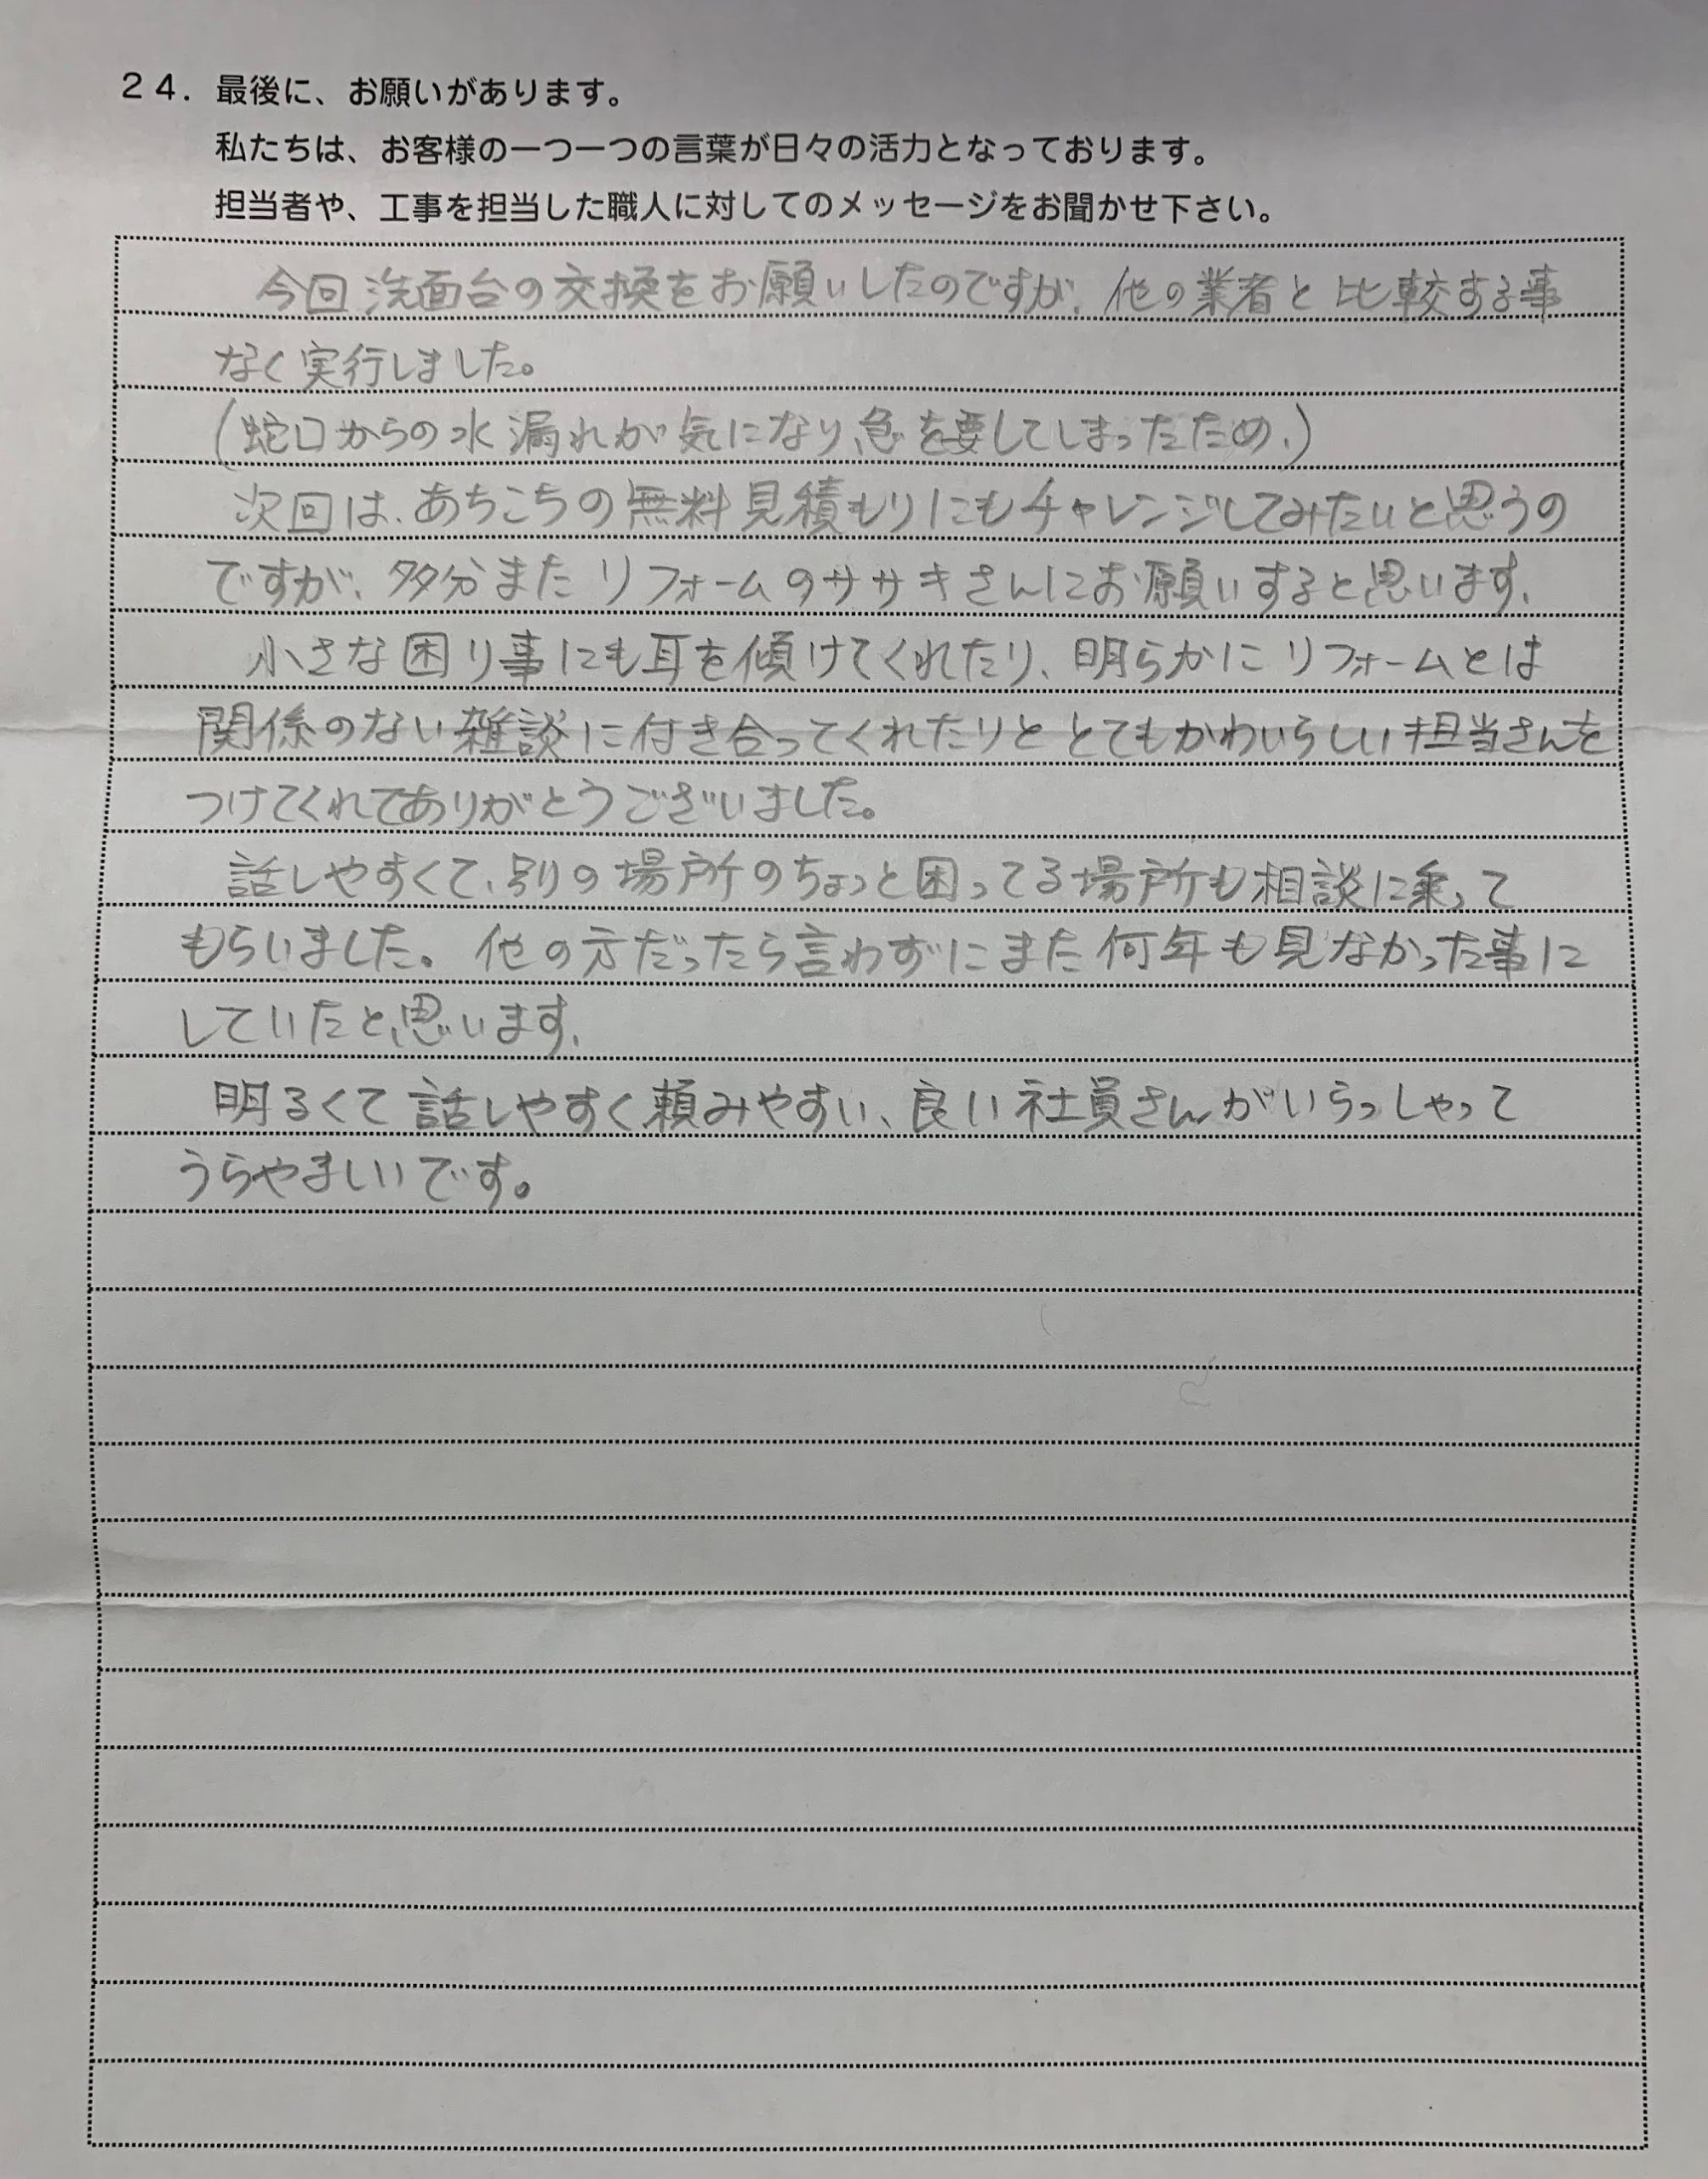 24. 最後に、お願いがあります。
私たちは、お客様の一つ一つの言葉が日々の活力となっております。
担当者や、工事を担当した職人に対してのメッセージをお聞かせ下さい。
今回洗面台の交換をお願いしたのですが、他の業者と比較する事
なく実行しました。
(蛇口からの水漏れが気になり、急を要してしまったため、)
次回は、あちこちの無料見積もりにもチャレンジしてみたいと思うの
ですが、多分またリフォームのササキさんにお願いすると思います、
小さな困り事にも耳を傾けてくれたり、明らかにリフォームとは
関係のない雑談に付き合ってくれたりととてもかわいらしい担当さんを
つけてくれてありがとうございました。
話しやすくて、別の場所のちょっと困ってる場所も相談に乗って
もらいました。他の方だったら言わずにまた何年も見なかった事に
していたと思います、
明るくて話しやすく頼みやすい、良い社員さんがいらっしゃって
うらやましいです。